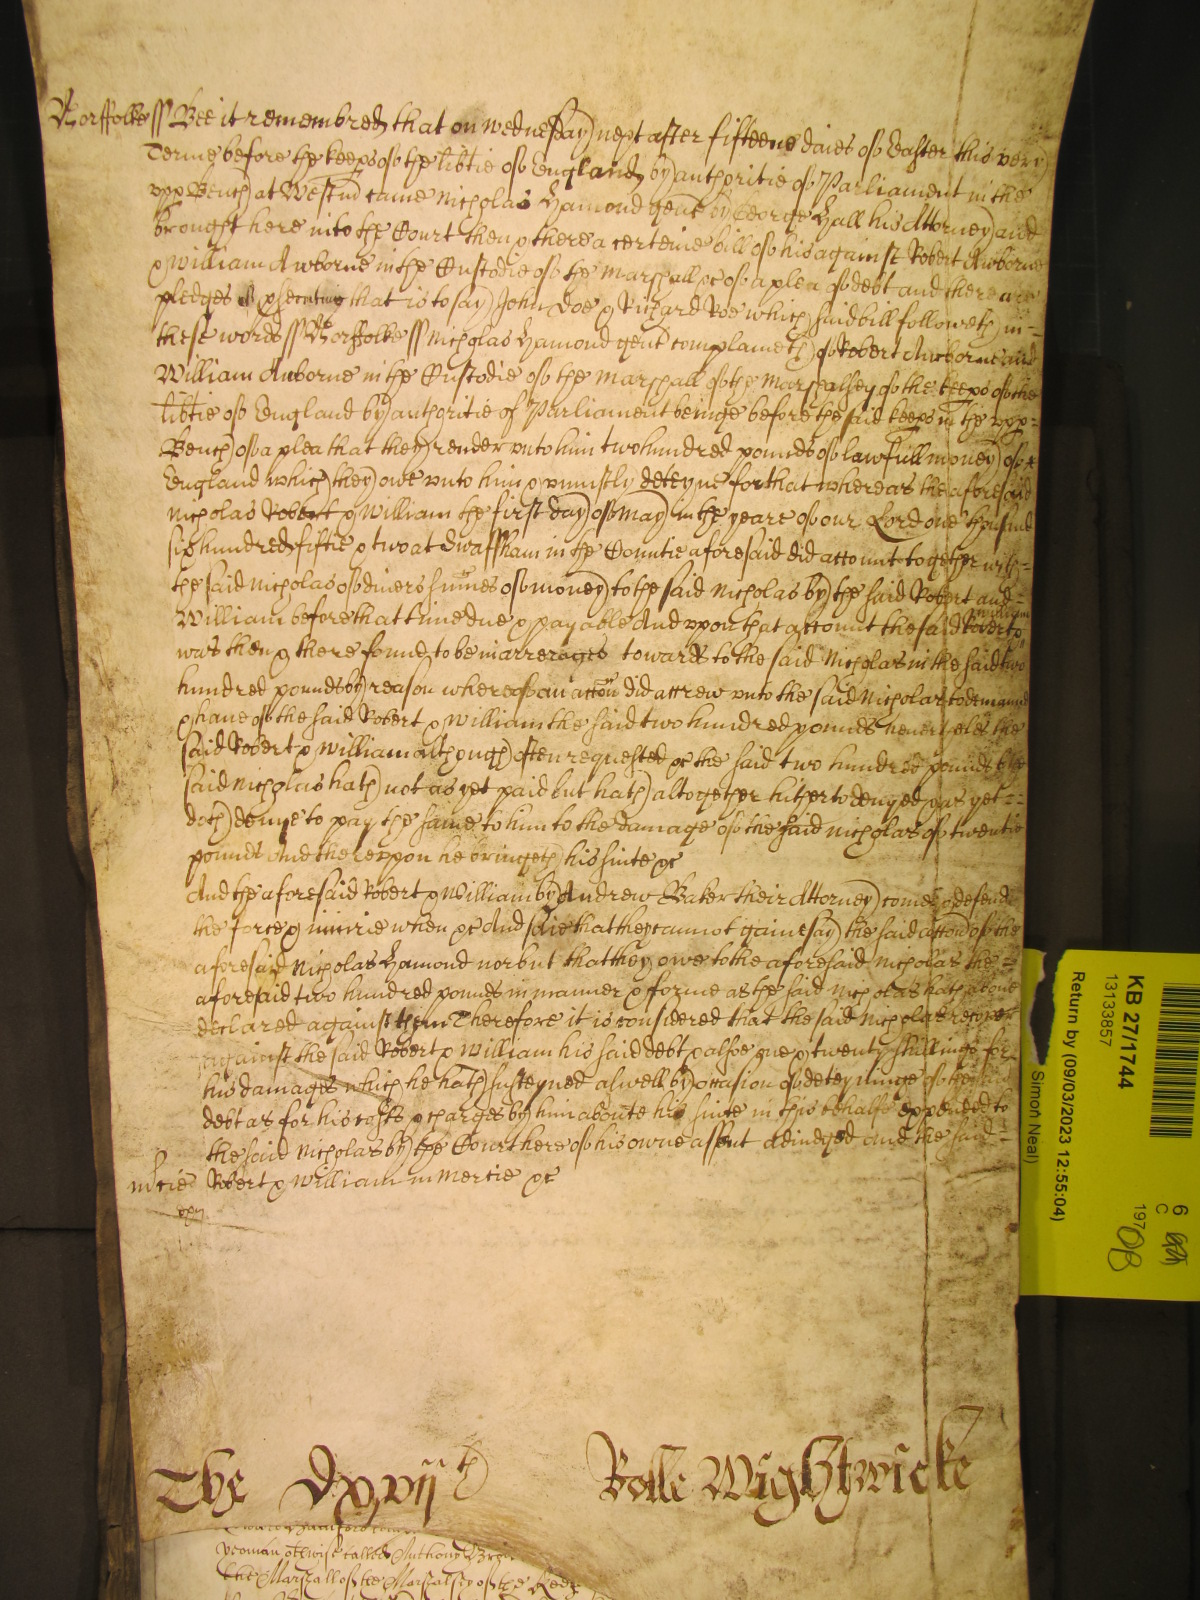 Norffolke ss Bee it remembred that on wednesday next after fifteene daies of Easter this very
Terme before the keeps of the libtie of England by authoritie of Parliament in the
upp Bench at Westm came Nicholas Hamond gent by George Hall his Attorney and
brought here into the Court then & there a certeine bill of his against Robert Awborne
& William Awborne in the Custodie of the Marshall &c of a plea of debt and there are
pledges of psecuting that is to say John Doe & Richard Roe which said bill followeth in
these words ss Norffolke ss Nicholas Hamond gent complaineth of Robert Awborne and
William Awborne in the Custodie of the Marshall of the Marshalsey of the keeps of the
libtie of England by authoritie of Parliament beinge before the said keeps in the upp
Bench of a plea that they render unto him two hundred pounds of lawfull money of
England which they owe unto him & uniustly deteyne for that whereas the aforesaid
Nicholas Robert & William the first day of May in the yeare of our Lord one thousand
six hundred fiftie & two at Swaffham in the Countie aforesaid did attount together with
the said Nicholas of divers sumes of money to the said Nicholas by the said Robert and
William before that time due & payable And upon that attount the said Robert & William
was then & there found to be in arrerages towards to the said Nicholas in the said two
hundred pounds by reason whereof an accon did accrew unto the said Nicholas to demaund
& have of the said Robert & William the said two hundred pounds neverthelesse the
said Robert & William although often requested &c the said two hundred pounds to the
said Nicholas hath not as yet paid but hath altogether hitherto denyed & as yet
doth denye to pay the same to him to the damage of the said Nicholas of twentie
pounds And thereupon he bringeth his suite &c
And the aforesaid Robert & William by Andrew Baker their Attorney comes & defends
the force & iniurie when &c And saie that they cannot gainesay the said accon of the
aforesaid Nicholas Hamond nor but that they owe to the aforesaid Nicholas the
aforesaid two hundred pounds in manner & forme as the said Nicholas hath above
declared against them Therefore it is considered that the said Nicholas recover
against the said Robert & William his said debt & alsoe one & twenty shillings for
his damages which he hath susteyned aswell by occasion of deteyninge of the said
debt as for his costs & charges by him aboute his suite in this behalfe expended to
the said Nicholas by the Court here of his owne assent adiudged and the said
mcie Robert & William in Mercie &c
The Dxvijth Rolle Wightwicke
yeoman otherwise called Anthony
the Marshall of the Marshalsey of the Keep
KB 27/1744
13133857
Return by (09/03/2023 12:55:04)
Simon Neal)
6
C
197
08